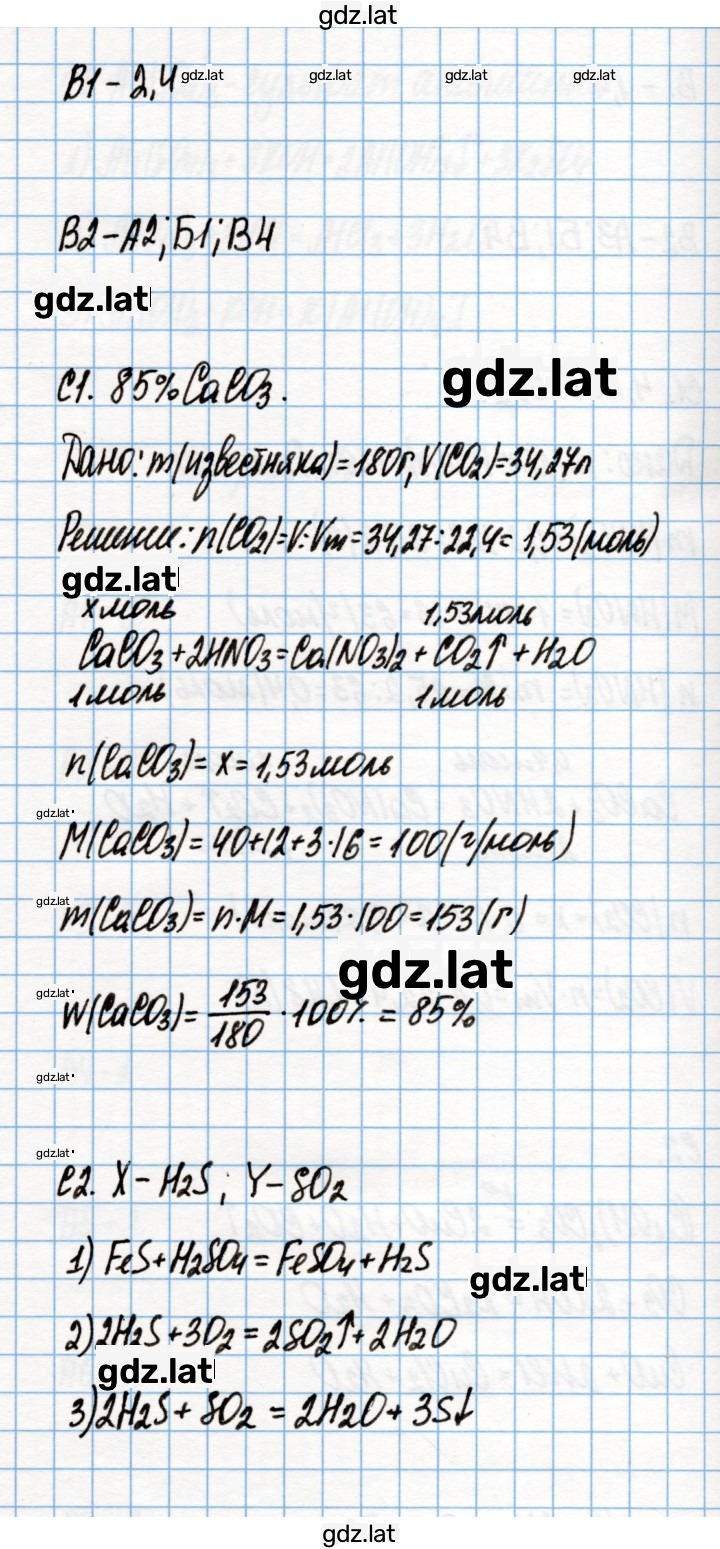 gdz.lat
В1 - 2,4 gdz.lat gdz.lat gdz.lat gdz.lat
В2-А2; Б1; В4
gdz.lat
С1. 85% CaCO3. gdz.lat
Дано: m(известняка)=180г, V(CO2)=34,27л
Решение: n(CO2)=V:Vm=34,27:22,4=1,53(моль)
gdz.lat
x моль 1,53моль
CaCO3+2HNO3=Ca(NO3)2+CO2↑+H2O
1 моль 1 моль
n(CaCO3)=x=1,53моль
gdz.lat
M(CaCO3)=40+12+3·16=100(г/моль)
gdz.lat
m(CaCO3)=n·M=1,53·100=153(г)
gdz.lat
gdz.lat
W(CaCO3)=153/180·100%=85%
gdz.lat
gdz.lat
С2. X-H2S; Y-SO2
1) FeS+H2SO4=FeSO4+H2S
gdz.lat
2)2H2S+3O2=2SO2↑+2H2O
gdz.lat
3)2H2S+SO2=2H2O+3S↓
gdz.lat